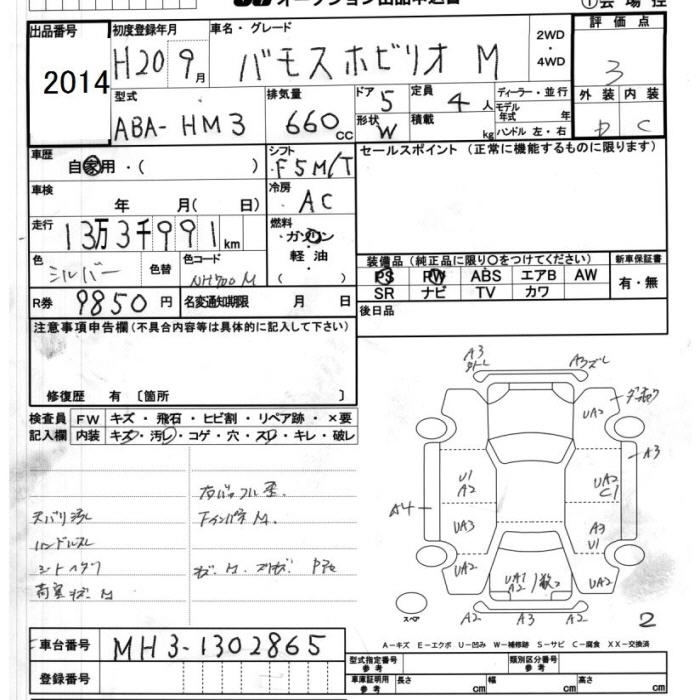 オークション出品申込書
①会場控
出品番号 2014
初度登録年月 H20 9月
車名・グレード バモスホビリオ M
2WD・4WD
評価点 3
型式 ABA-HM3
排気量 660cc
ドア 5
形状 W
定員 4人
積載 kg
ディーラー・並行
モデル年式 年
ハンドル 左・右
外装 D
内装 C
車歴 自家用・( )
シフト F5M/T
セールスポイント (正常に機能するものに限ります)
車検 年 月( 日)
冷房 AC
走行 13万3千991km
燃料 ガソリン・軽油・
色 シルバー 色替
色コード NH700M
装備品 (純正品に限り○をつけてください)
PS PW ABS エアB AW
SR ナビ TV カワ
新車保証書 有・無
R券 9850円
名変通知期限 月 日
後日品
注意事項申告欄 (不具合内容等は具体的に記入して下さい)
修復歴 有 〔箇所 〕
検査員記入欄
FW キズ・飛石・ヒビ割・リペア跡・×要
内装 キズ・汚レ・コゲ・穴・スレ・キレ・破レ
天バリ汚レ
ハンドルスレ
シートヘタリ
A3
A3ズレ
UA2
A3
U1
A2
UA2
C1
A4
UA3
A3
U1
UA2
UA1
A2
UA2
スペア
A2 A3 A2
2
A-キズ E-エクボ U-凹み W-補修跡 S-サビ C-腐食 XX-交換済
車台番号 HM3-1302865
登録番号
型式指定番号 参考
類別区分番号 参考
車庫証明用 参考 長さ cm 幅 cm 高さ cm